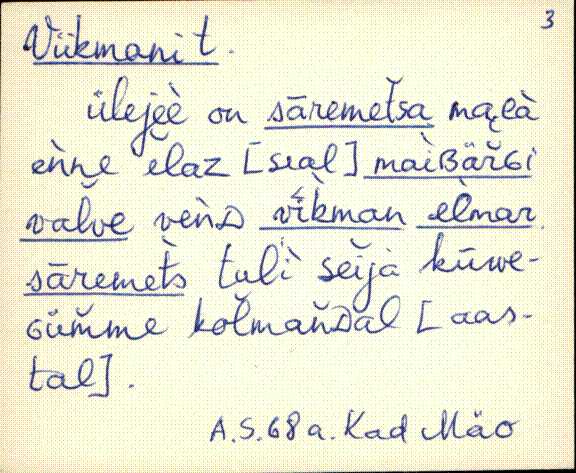 3
Viikmanit.
ülejèè on sāremet̆sa mąeà
eǹne ĕlaz [seal] maìʙäřɢi
vaľve veǹᴅ vìkman eľmar
sāremet̀s tulì seĭja kūwe-
ɢüm̆me kol̆man̆ᴅal [aas-
tal].
A.S. 68 a. Kad Mäo